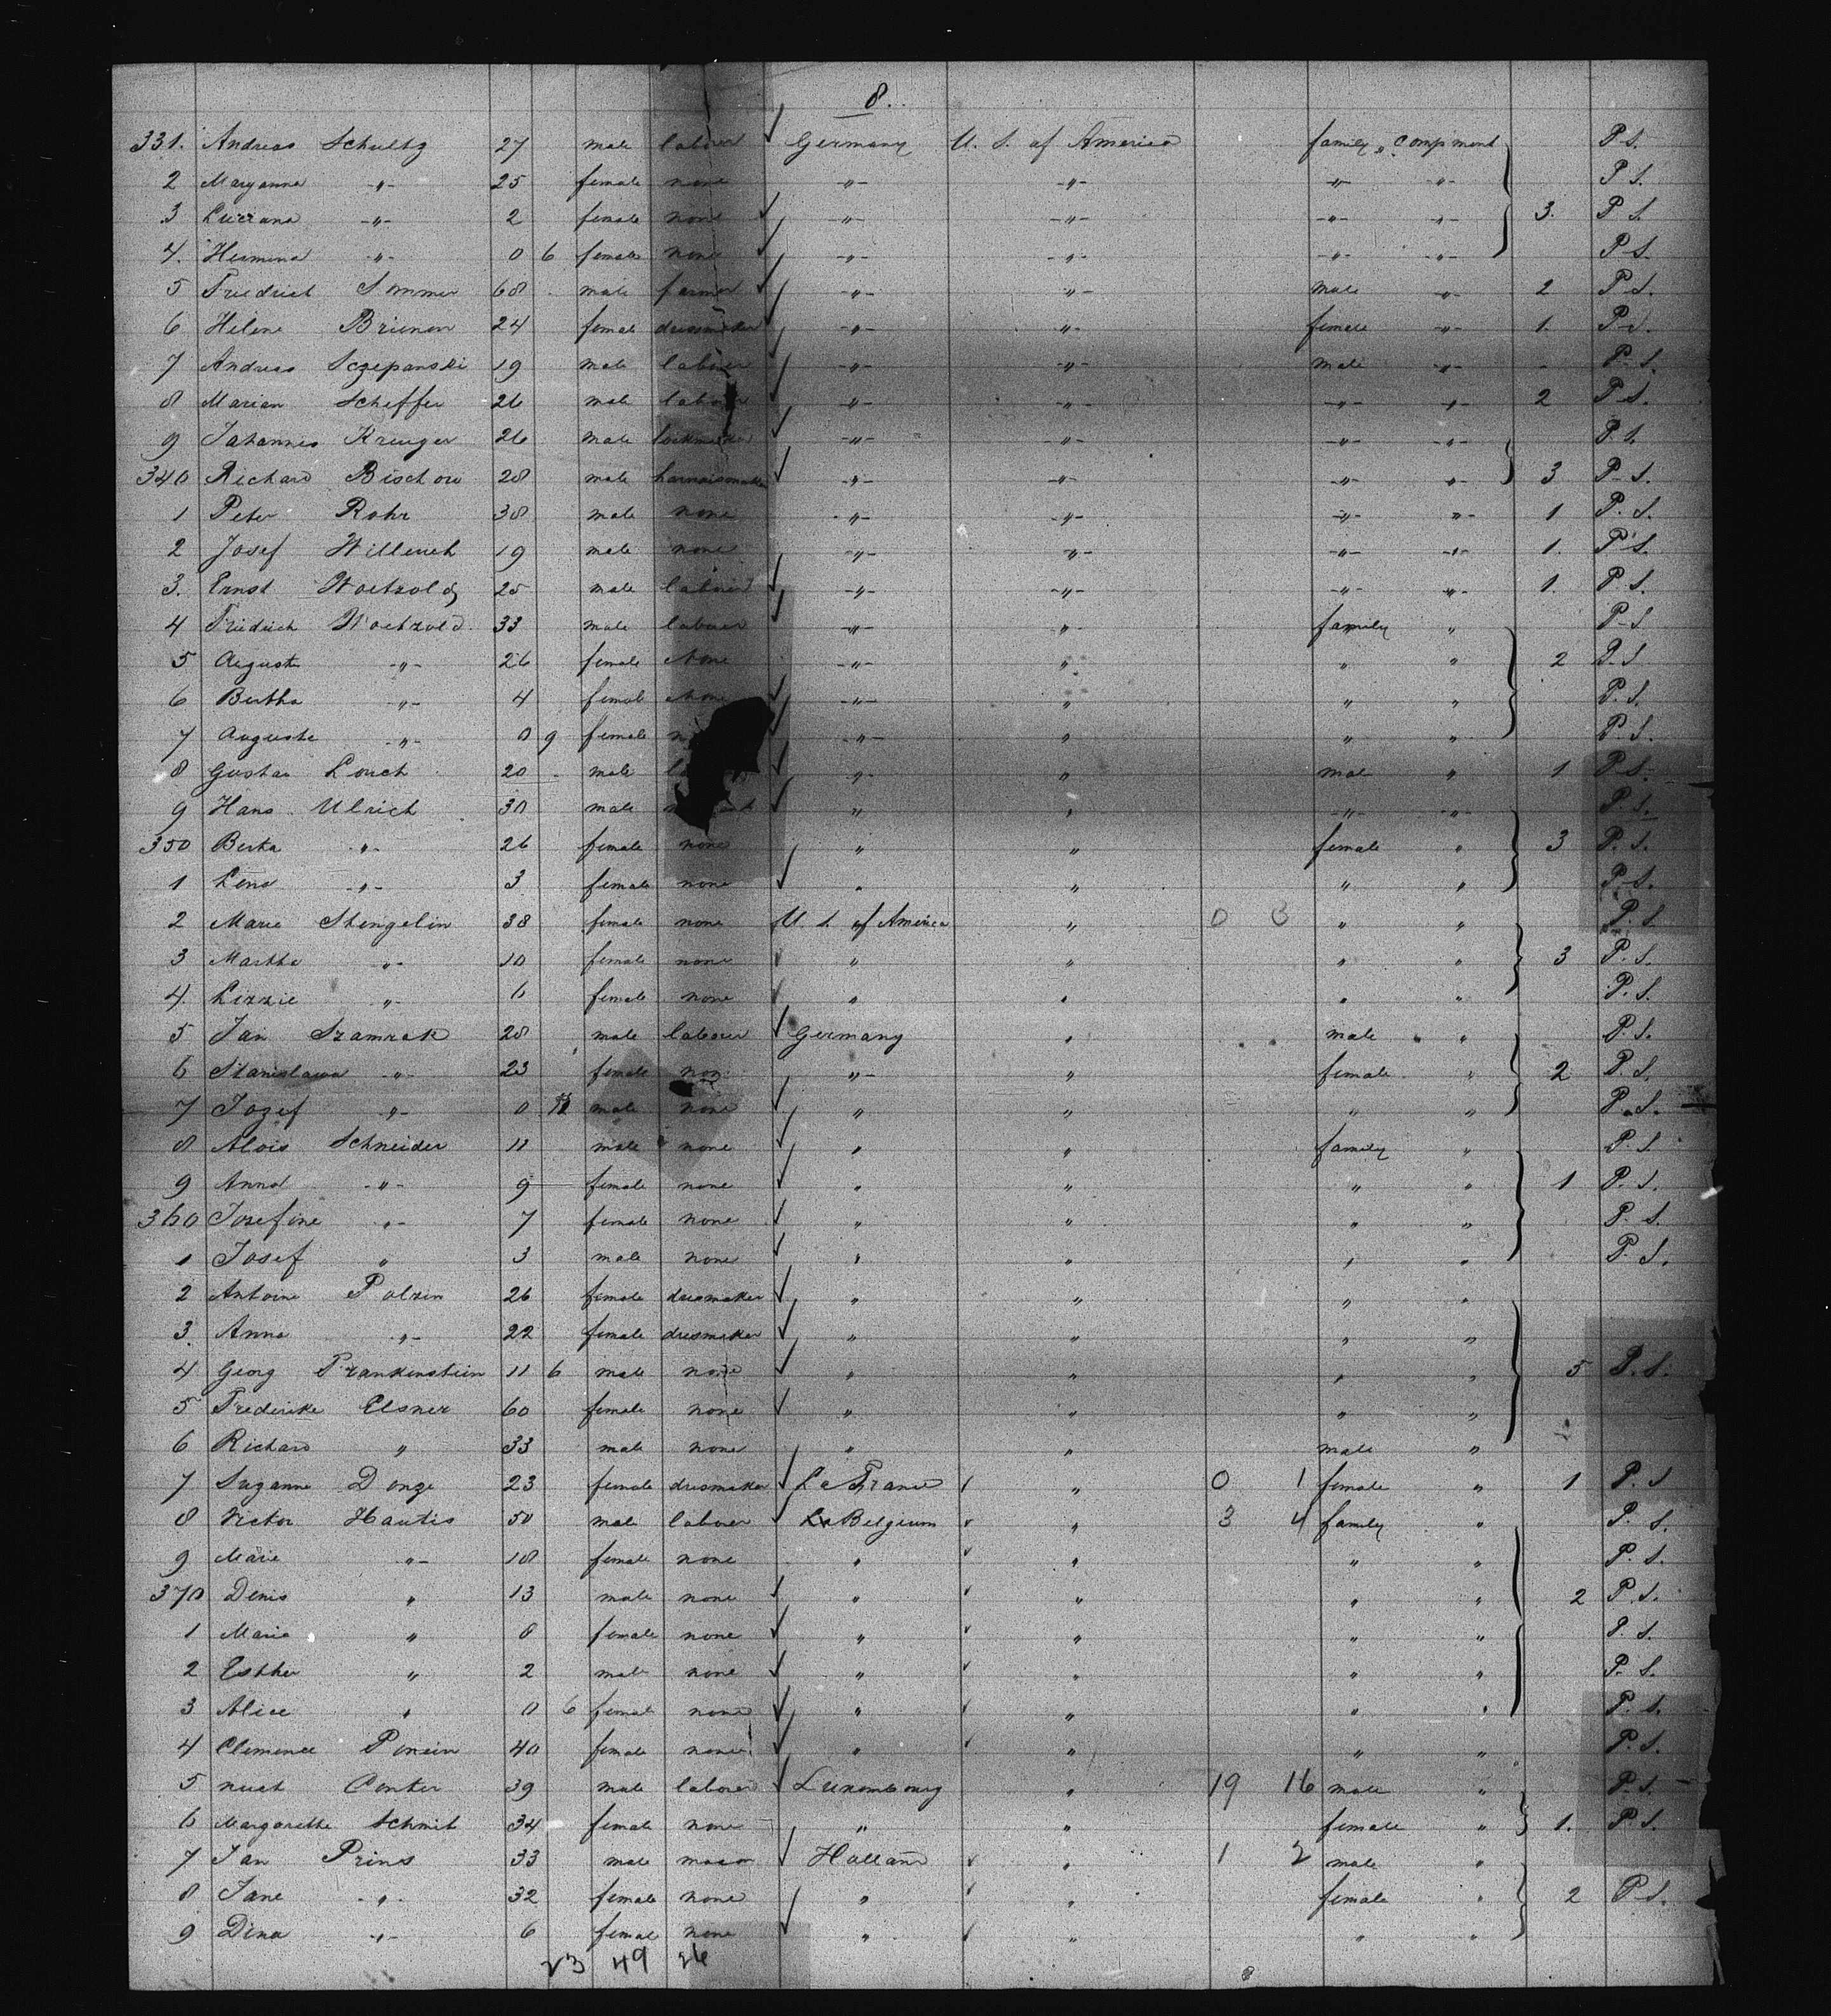 8.
331. Andreas Schultz 27 male laborer Germany U. S. of America family compment P. S.
2 Maryanna -"- 25 female none -"- -"- -"- -"- P. S.
3 Luzzana -"- 2 female none -"- -"- -"- -"- 3. P. S.
4. Hermina -"- 0 6 female none -"- -"- -"- -"- P. S.
5 Friedrich Sommer 68 male farmer -"- -"- male -"- 2 P. S.
6 Helene Brienon 24 female dressmaker -"- -"- female -"- 1. P. S.
7 Andreas Sczepanski 19 male laborer -"- -"- male -"- P. S.
8 Marian Scheffer 26 male laborer -"- -"- -"- -"- 2 P. S.
9 Johannes Kreuger 26 male lockmaker -"- -"- -"- -"- P. S.
340 Richard Bischow 28 male harnaismaker -"- -"- -"- -"- 3 P. S.
1 Peter Rohr 38 male none -"- -"- -"- -"- 1 P. S.
2 Josef Willench 19 male none -"- -"- -"- -"- 1. P. S.
3. Ernst Woetzold 25 male laborer -"- -"- -"- -"- 1. P. S.
4 Friedrich Woetzold. 33 male laborer -"- -"- family " P. S.
5 Auguste -"- 26 female none -"- " " " 2 P. S.
6 Bertha -"- 4 female none -"- " " " P. S.
7 Auguste -"- 0 9 female -"- " " " P. S.
8 Gustav Lonch 20 male -"- " male " 1 P. S.
9 Hans Ulrich 30 male " " -"- -"- P. S.
350 Berta -"- 26 female none " " female " 3 P. S.
1 Lena -"- 3 female none " " " " P. S.
2 Marie Stengelin 38 female none U. S. of America " 0 3 " " P. S.
3 Martha -"- 10 female none " " " " 3 P. S.
4. Lizzie -"- 6 female none " " " " P. S.
5 Jan Szamrak 28 male laborer Germany " male " P. S.
6 Stanislawa -"- 23 female non -"- " female " 2 P. S.
7 Jozef -"- 0 male none " " " " P. S.
8 Alois Schneider 11 male none " " family " P. S.
9 Anna -"- 9 female none " " " " 1 P. S.
360 Josefine -"- 7 female none " " " " P. S.
1 Josef " 3 male none " " " " P. S.
2 Antoine Polzin 26 female dresmaker " " " "
3. Anna -"- 22 female dresmaker " " " "
4 Georg Frankenstein 11 6 male none " " " " 5 P. S.
5 Frederike Elsner 60 female none " " " "
6 Richard " 33 male none " " male "
7 Suzanne Donze 23 female dresmaker La France " 0 1 female " 1 P. S.
8 Victor Hautis 50 male laborer Belgium " 3 4 family " P. S.
9 Marie -"- 18 female none " " " " P. S.
370 Denis " 13 male none " " " " 2 P. S.
1 Maria " 8 female none " " " " P. S.
2 Esther " 2 male none " " " " P. S.
3 Alice " 0 6 female none " " " " P. S.
4 Clemence Poncin 40 female none " " " " P. S.
5 Conter 39 male laborer Luxembourg " 19 16 male " P. S.
6 Margarethe Schmit 34 female none " " female " 1. P. S.
7 Jan Prins 33 male mason Holland " 1 2 male "
8 Jane -"- 32 female none " " female " 2 P. S.
9 Dina -"- 6 female none " " " "
23 49 26